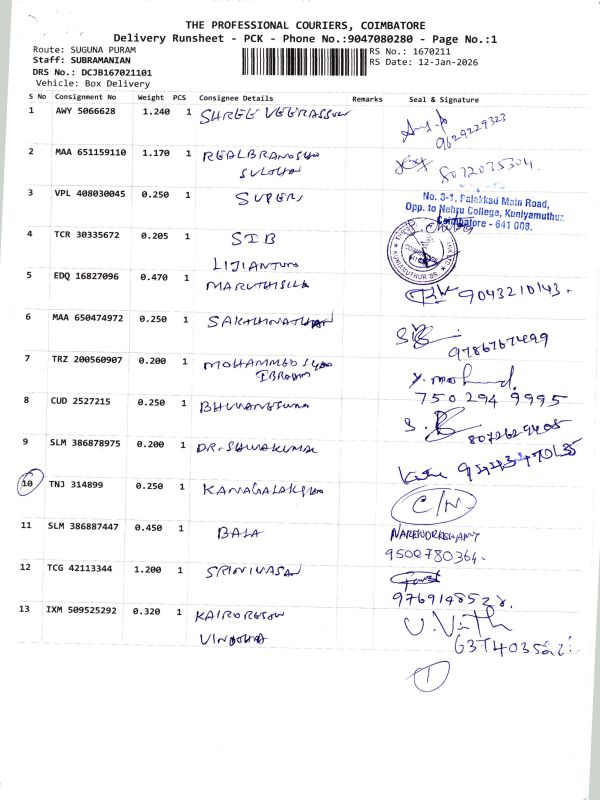 THE PROFESSIONAL COURIERS, COIMBATORE
Delivery Runsheet - PCK - Phone No.:9047080280 - Page No.:1
Route: SUGUNA PURAM
RS No.: 1670211
Staff: SUBRAMANIAN
RS Date: 12-Jan-2026
DRS No.: DCJB167021101
Vehicle: Box Delivery
S No Consignment No Weight PCS Consignee Details Remarks Seal & Signature
1 AWY 5066628 1.240 1 SHREE
9629229323
2 MAA 651159110 1.170 1
8072035304
3 VPL 408030045 0.250 1 SUPERS
No. 3-1, Palakkad Main Road,
Opp. to Nehru College, Kuniyamuthur
Coimbatore - 641 008.
4 TCR 30335672 0.205 1 SIB
5 EDQ 16827096 0.470 1
9043210143.
6 MAA 650474972 0.250 1
9786767499
7 TRZ 200560907 0.200 1 MOHAMMED
Y. mohmd.
750 294 9995
8 CUD 2527215 0.250 1
9 SLM 386878975 0.200 1 DR. SHIVAKUMAR
10 TNJ 314899 0.250 1
C/N
11 SLM 386887447 0.450 1 BALA
9500780364.
12 TCG 42113344 1.200 1 SRINIVASAN
13 IXM 509525292 0.320 1
1